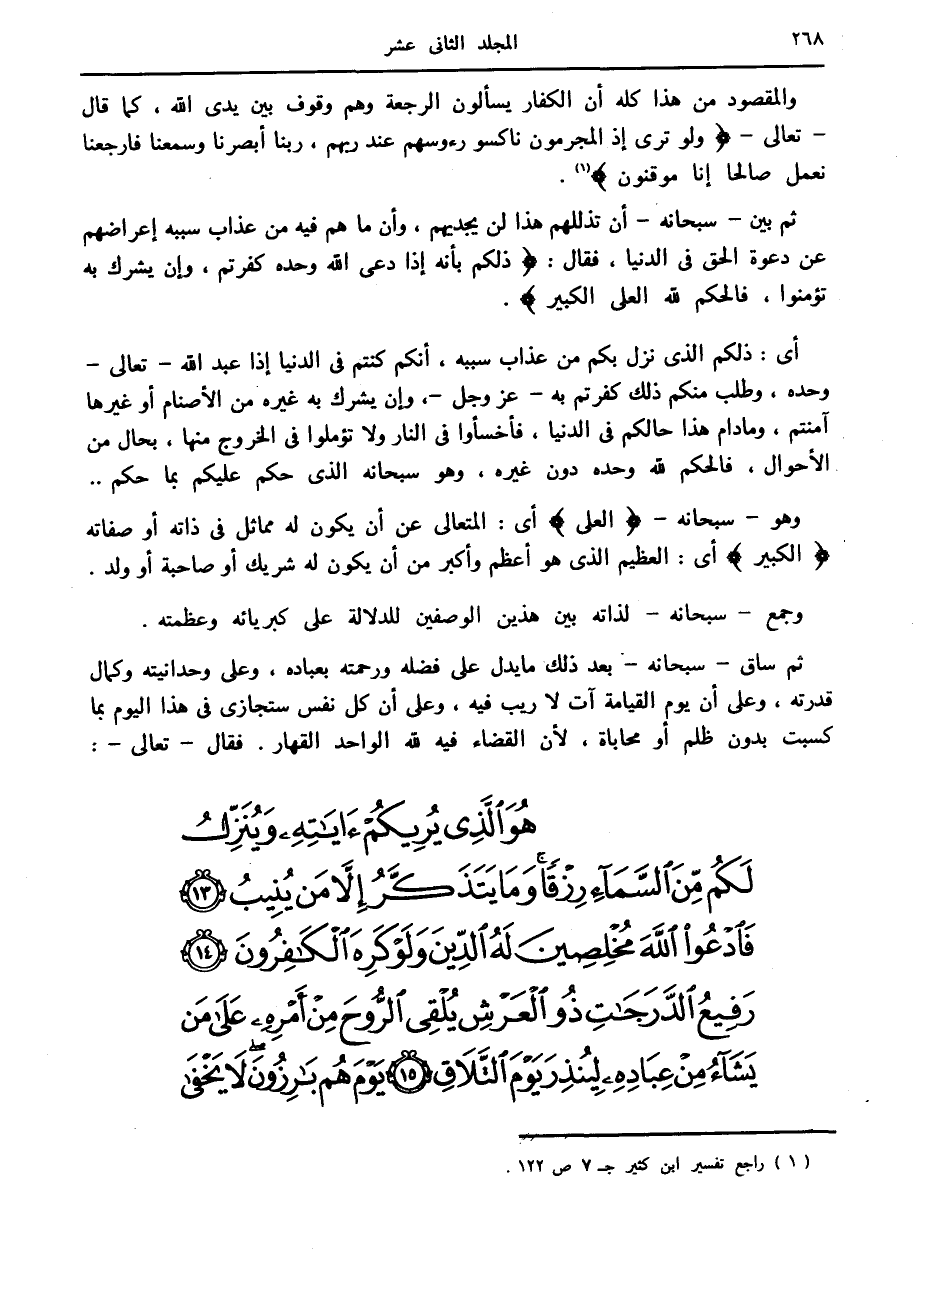 ٢٦٨
المجلد الثانى عشر
والمقصود من هذا كله أن الكفار يسألون الرجعة وهم وقوف بين يدى الله ، كما قال
– تعالى – ﴿ ولو ترى إذ المجرمون ناكسو رءوسهم عند ربهم ، ربنا أبصرنا وسمعنا فارجعنا
نعمل صالحا إنا موقنون ﴾(١) .
ثم بين – سبحانه – أن تذللهم هذا لن يجديهم ، وأن ما هم فيه من عذاب سببه إعراضهم
عن دعوة الحق فى الدنيا ، فقال : ﴿ ذلكم بأنه إذا دعى الله وحده كفرتم ، وإن يشرك به
تؤمنوا ، فالحكم لله العلى الكبير ﴾ .
أى : ذلكم الذى نزل بكم من عذاب سببه ، أنكم كنتم فى الدنيا إذا عبد الله – تعالى –
وحده ، وطلب منكم ذلك كفرتم به – عز وجل –، وإن يشرك به غيره من الأصنام أو غيرها
آمنتم ، ومادام هذا حالكم فى الدنيا ، فأخسأوا فى النار ولا تؤملوا فى الخروج منها ، بحال من
الأحوال ، فالحكم لله وحده دون غيره ، وهو سبحانه الذى حكم عليكم بما حكم ..
وهو – سبحانه – ﴿ العلى ﴾ أى : المتعالى عن أن يكون له مماثل فى ذاته أو صفاته
﴿ الكبير ﴾ أى : العظيم الذى هو أعظم وأكبر من أن يكون له شريك أو صاحبة أو ولد .
وجمع – سبحانه – لذاته بين هذين الوصفين للدلالة على كبريائه وعظمته .
ثم ساق – سبحانه – بعد ذلك مايدل على فضله ورحمته بعباده ، وعلى وحدانيته وكمال
قدرته ، وعلى أن يوم القيامة آت لا ريب فيه ، وعلى أن كل نفس ستجازى فى هذا اليوم بما
كسبت بدون ظلم أو محاباة ، لأن القضاء فيه لله الواحد القهار . فقال – تعالى – :
هُوَ ٱلَّذِى يُرِيكُمْ ءَايَٰتِهِۦ وَيُنَزِّلُ
لَكُم مِّنَ ٱلسَّمَآءِ رِزْقًاۚ وَمَا يَتَذَكَّرُ إِلَّا مَن يُنِيبُ ١٣
فَٱدْعُوا۟ ٱللَّهَ مُخْلِصِينَ لَهُ ٱلدِّينَ وَلَوْ كَرِهَ ٱلْكَٰفِرُونَ ١٤
رَفِيعُ ٱلدَّرَجَٰتِ ذُو ٱلْعَرْشِ يُلْقِى ٱلرُّوحَ مِنْ أَمْرِهِۦ عَلَىٰ مَن
يَشَآءُ مِنْ عِبَادِهِۦ لِيُنذِرَ يَوْمَ ٱلتَّلَاقِ ١٥ يَوْمَ هُم بَٰرِزُونَۖ لَا يَخْفَىٰ
( ١ ) راجع تفسير ابن كثير جـ ٧ ص ١٢٢ .